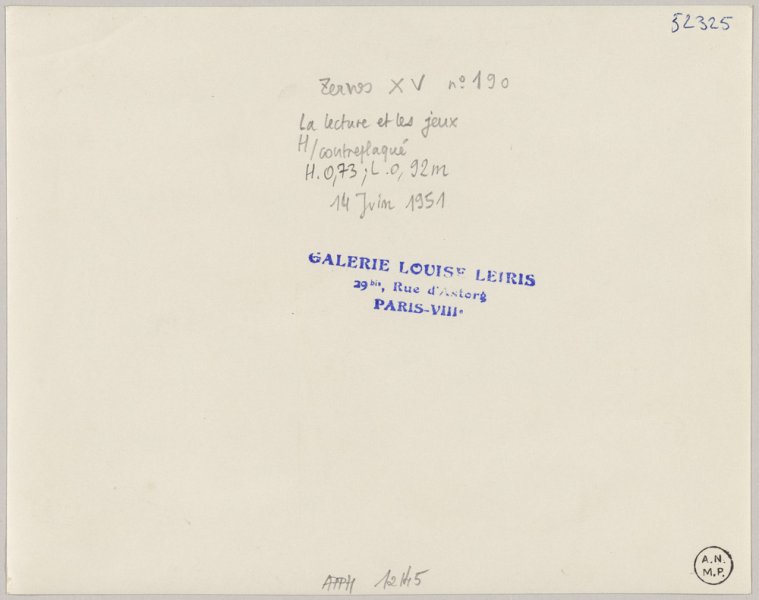 52325
Zervos XV nº 190
La lecture et les jeux
H/contreplaqué
H. 0,73 ; L. 0,92m
14 Juin 1951
GALERIE LOUISE LEIRIS
29bis, Rue d'Astorg
PARIS-VIIIe
APPH 1245
A.N.
M.P.